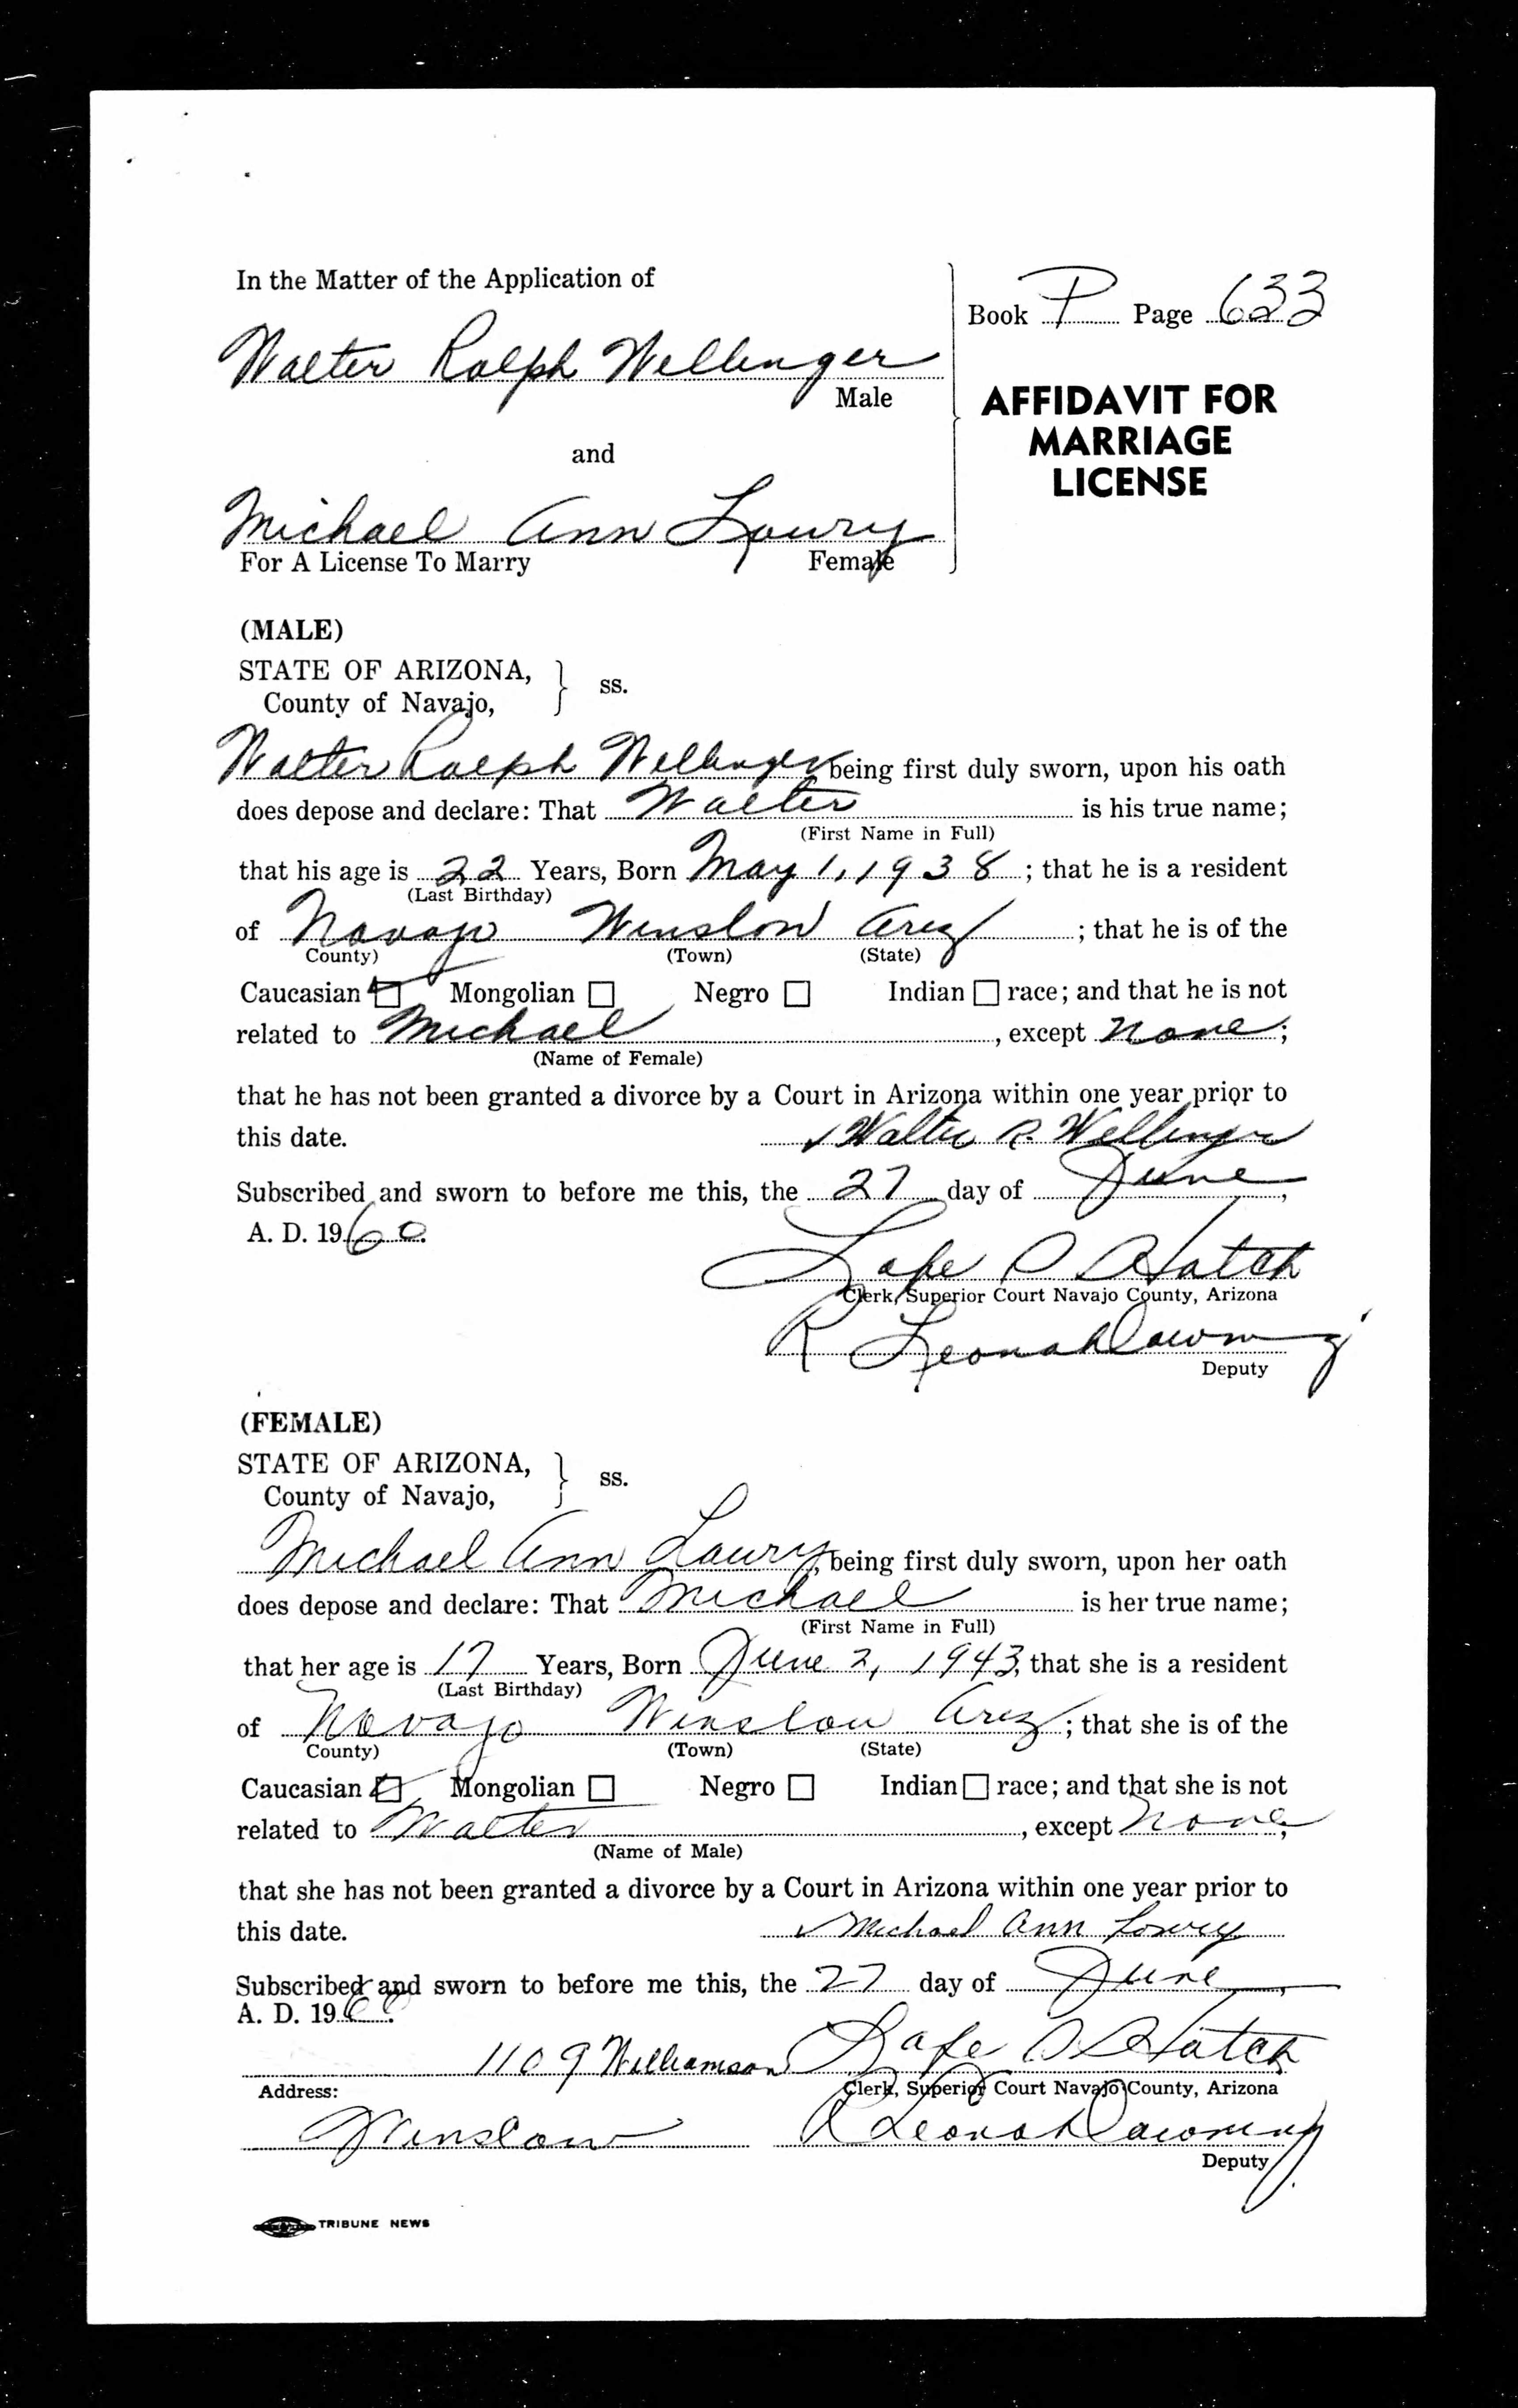 In the Matter of the Application of
Book P Page 633
Walter Ralph Wellinger
Male
AFFIDAVIT FOR
MARRIAGE
LICENSE
and
Michael Ann Lowry
For A License To Marry Female
(MALE)
STATE OF ARIZONA,
County of Navajo, } ss.
Walter Ralph Wellinger being first duly sworn, upon his oath
does depose and declare: That Walter is his true name;
(First Name in Full)
that his age is 22 Years, Born May 1, 1938; that he is a resident
(Last Birthday)
of Navajo Winslow Ariz; that he is of the
County) (Town) (State)
Caucasian Mongolian Negro Indian race; and that he is not
related to Michael, except none;
(Name of Female)
that he has not been granted a divorce by a Court in Arizona within one year prior to
this date. Walter R. Wellinger
Subscribed and sworn to before me this, the 27 day of June,
A. D. 1960.
Lafe S Hatch
Clerk, Superior Court Navajo County, Arizona
R Leonah Downing
Deputy
(FEMALE)
STATE OF ARIZONA,
County of Navajo, } ss.
Michael Ann Lowry, being first duly sworn, upon her oath
does depose and declare: That Michael is her true name;
(First Name in Full)
that her age is 17 Years, Born June 2, 1943, that she is a resident
(Last Birthday)
of Navajo Winslow Ariz; that she is of the
County) (Town) (State)
Caucasian Mongolian Negro Indian race; and that she is not
related to Walter, except none;
(Name of Male)
that she has not been granted a divorce by a Court in Arizona within one year prior to
this date. Michael Ann Lowry
Subscribed and sworn to before me this, the 27 day of June,
A. D. 1960.
1109 Williamson Lafe S Hatch
Address: Clerk, Superior Court Navajo County, Arizona
Winslow R Leonah Downing
Deputy
TRIBUNE NEWS